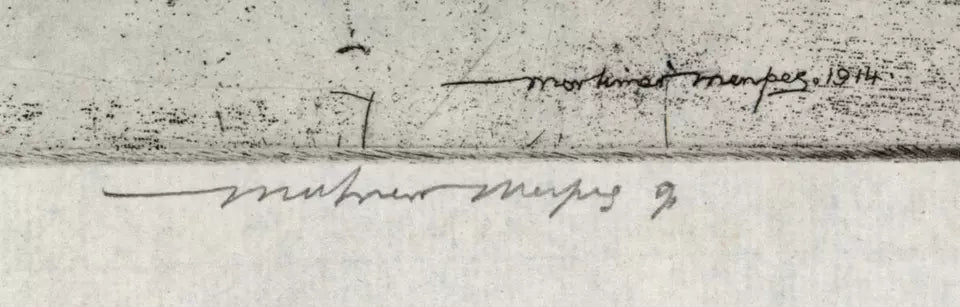 Mortimer Menpes. 1914.
Mortimer Menpes